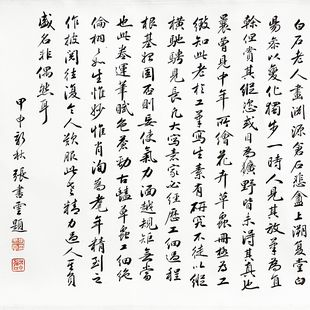 白石老人畫淵源倉石悲盦上溯复堂白
陽參以變化獨步一時人見其放筆為直
幹但賞其縱恣或目為獷野時未得其真也
曩曾見中年所繪花卉草蟲冊極為工
緻知此老於工筆寫生素有研究不徒以縱
橫馳騁見長凡大寫意家必經歷工細過程
根基穩固否則妄使氣力越規矩無當
也此卷運筆賦色蒼勁古豔草蟲工細絕
倫栩栩如生惟妙惟肖洵為老年精到之
作披閱往復令人歎服此老精力過人宜負
盛名非偶然耳
甲申新秋張書雲題